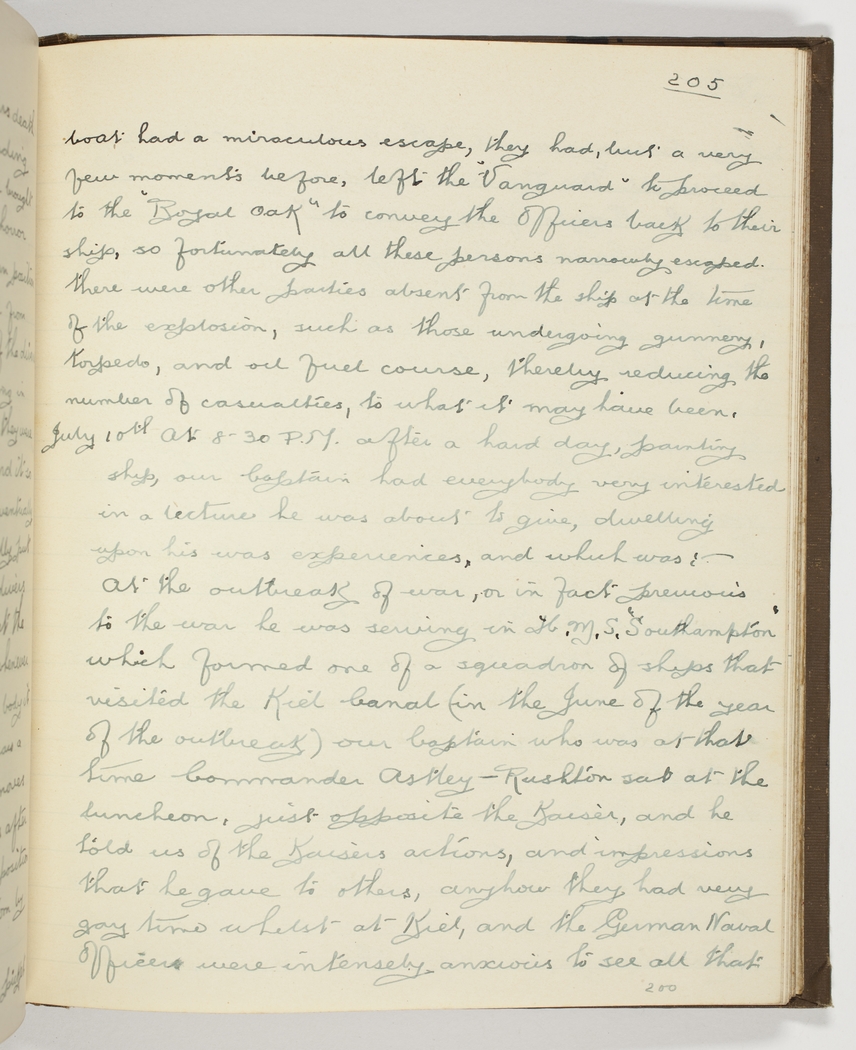 205
boat had a miraculous escape, they had, but a very
few moments before, left the "Vanguard" to proceed
to the "Royal Oak" to convey the Officers back to their
ship, so fortunately all these persons narrowly escaped.
there were other parties absent from the ship at the time
of the explosion, such as those undergoing gunnery,
torpedo, and oil fuel course, thereby reducing the
number of casualties, to what it may have been.
July 10th At 8-30 P.M. after a hard day, painting
ship, our Captain had everybody very interested
in a lecture he was about to give, dwelling
upon his was experiences, and which was:-
At the outbreak of war, or in fact previous
to the war he was serving in H.M.S. "Southampton"
which formed one of a squadron of ships that
visited the Kiel Canal (in the June of the year
of the outbreak) our Captain who was at that
time Commander Astley-Rushton sat at the
luncheon, just opposite the Kaiser, and he
told us of the Kaisers actions, and impressions
that he gave to others, anyhow they had very
gay time whilst at Kiel, and the German Naval
Officers were intensely anxious to see all that
200